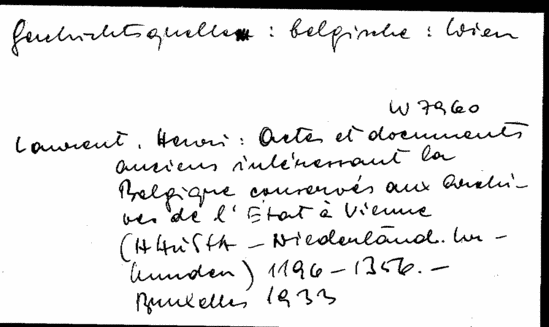 Geschichtsquellen : belgische : Wien
W 7960
Laurent, Henri: Actes et documents
anciens intéressant la
Belgique conservés aux archi-
ves de l'État à Vienne
(HHuStA - Niederländ. Ur-
kunden) 1196-1356.-
Bruxelles 1933